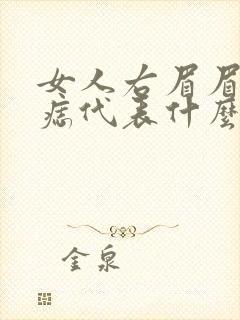 女人右眉眉
痣代表什麼
金泉